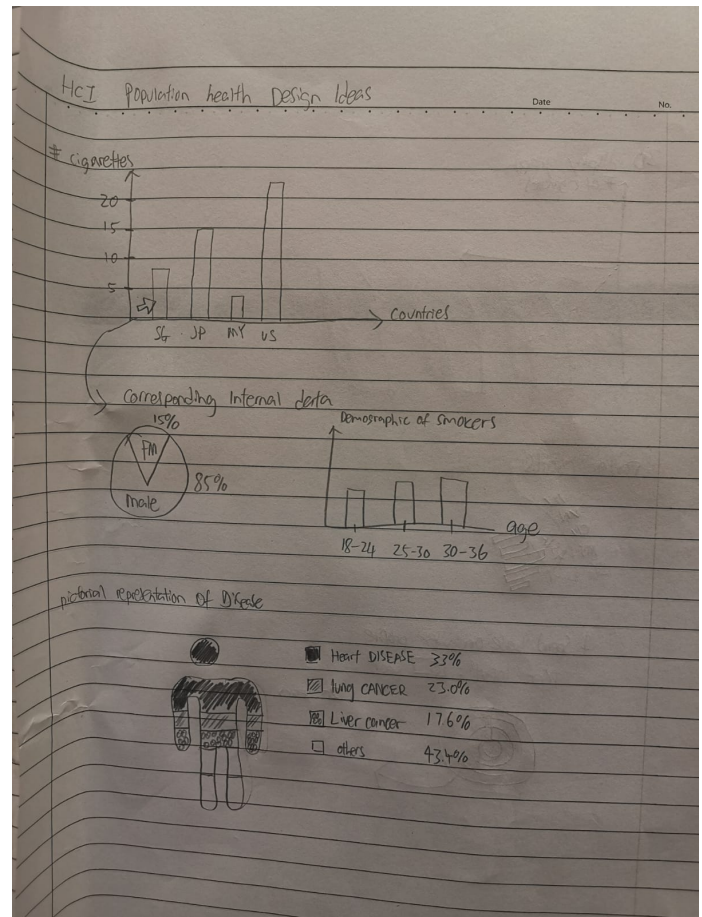 HCI Population health Design Ideas
Date No.
# cigarettes
20
15
10
5
SG JP MY US
Countries
Corresponding Internal data
15%
FM
85%
male
Demographic of smokers
age
18-24 25-30 30-36
pictorial representation of Disease
Heart DISEASE 33%
lung CANCER 23.0%
Liver cancer 17.6%
others 43.4%